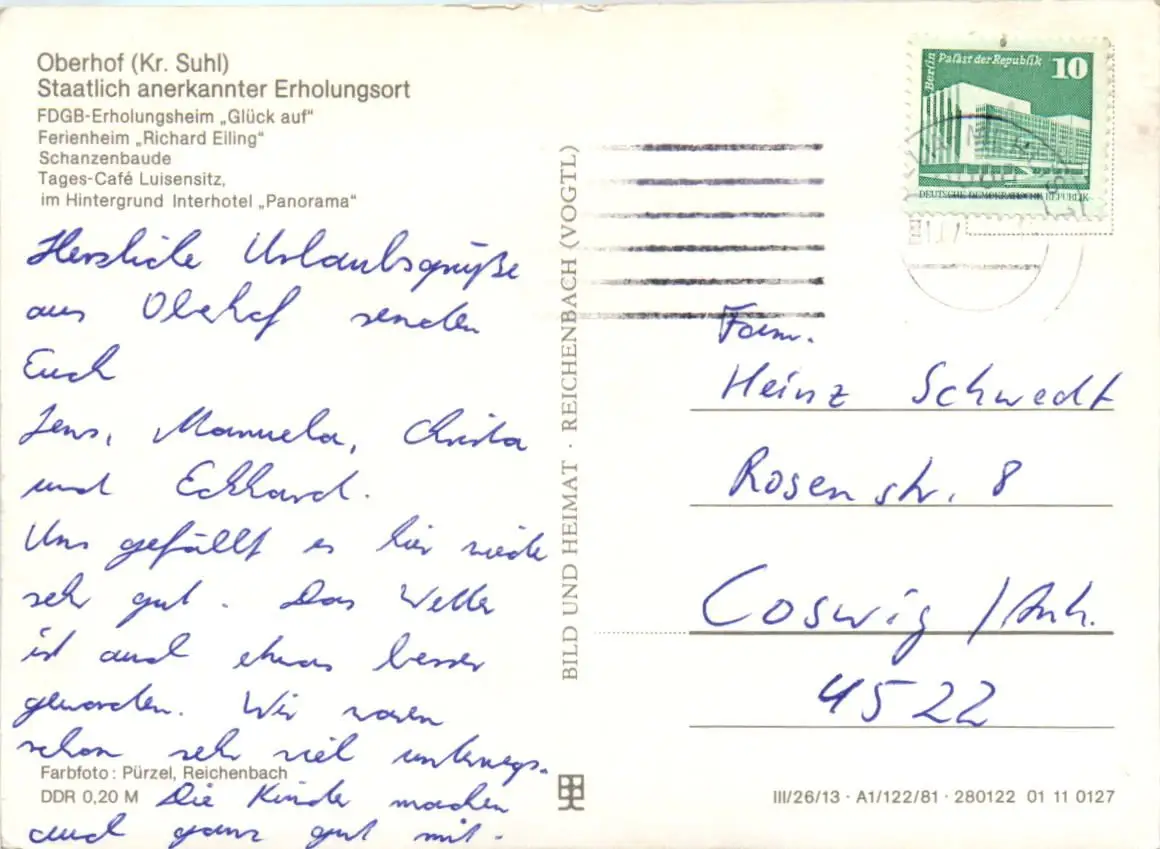 Oberhof (Kr. Suhl)
Staatlich anerkannter Erholungsort
FDGB-Erholungsheim „Glück auf“
Ferienheim „Richard Eiling“
Schanzenbaude
Tages-Café Luisensitz,
im Hintergrund Interhotel „Panorama“
Herzliche Urlaubsgrüße
aus Oberhof senden
Euch
Jens, Manuela, Christa
und Eckhard.
Uns gefällt es hier wieder
sehr gut. Das Wetter
ist auch etwas besser
geworden. Wir waren
schon sehr viel unterwegs.
Die Kinder machen
auch ganz gut mit.
Farbfoto: Pürzel, Reichenbach
DDR 0,20 M
BILD UND HEIMAT · REICHENBACH (VOGTL)
Berlin
Palast der Republik
10
DEUTSCHE DEMOKRATISCHE REPUBLIK
Fam.
Heinz Schwedt
Rosenstr. 8
Coswig /Anh.
4522
III/26/13 · A1/122/81 · 280122 01 11 0127